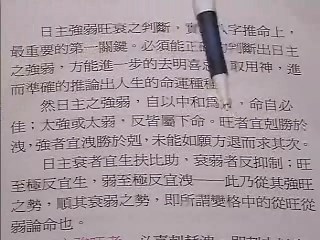 日主強弱旺衰之判斷，實 八字推命上，
最重要的第一關鍵。必須能正 判斷出日主
之強弱，方能進一步的去明喜 取用神，進
而準確的推論出人生的命運種種
然日主之強弱，自以中和為 ，命自必
佳；太強或太弱，反皆屬下命。旺者宜剋勝於
洩，強者宜洩勝於剋，未能如願方退而求其次。
日主衰者宜生扶比助，衰弱者反抑制；旺
至極反宜生，弱至極反宜洩——此乃從其強旺
之勢，順其衰弱之勢，即所謂變格中的從旺從
弱論命也。